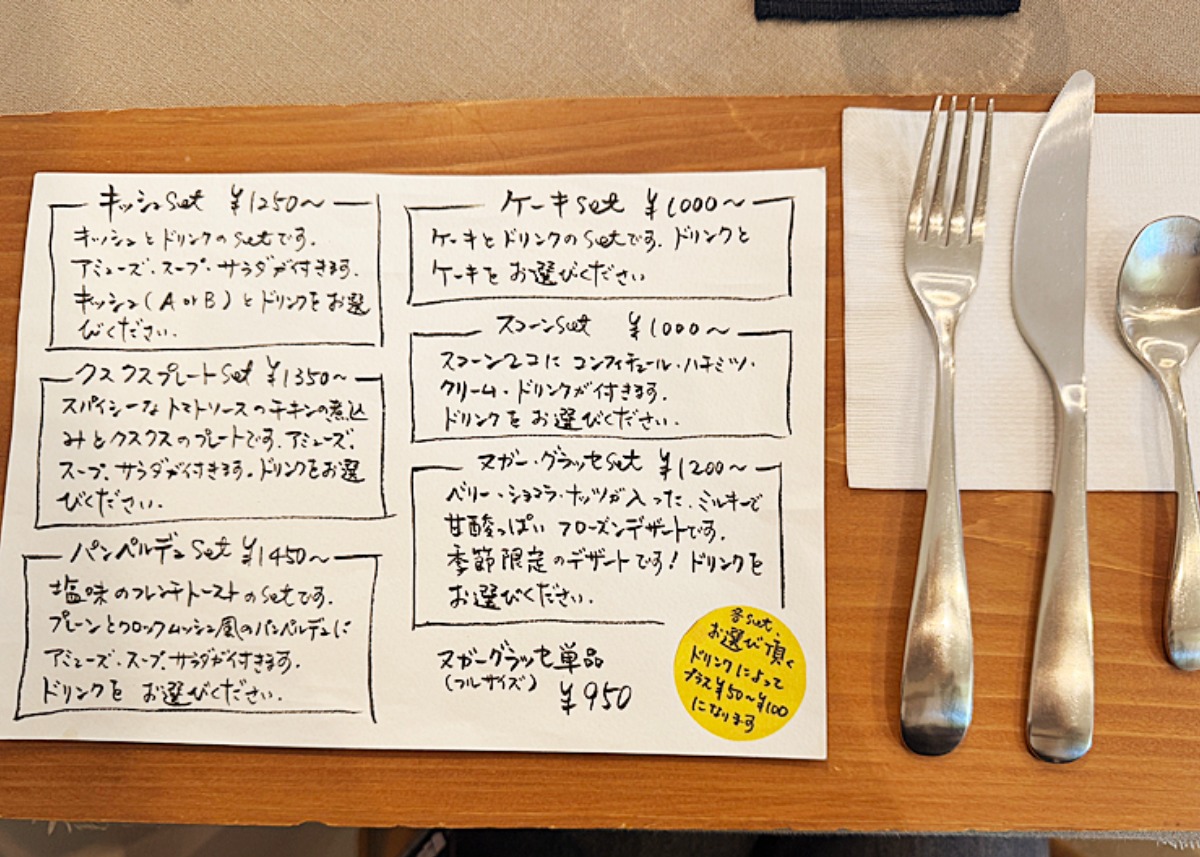 キッシュset ¥1250〜
キッシュとドリンクのsetです.
アミューズ・スープ・サラダが付きます.
キッシュ(A or B)とドリンクをお選
びください.
クスクスプレートset ¥1350〜
スパイシーなトマトソースのチキンの煮込
みとクスクスのプレートです.アミューズ.
スープ.サラダが付きます.ドリンクをお選
びください.
パンペルデュset ¥1450〜
塩味のフレンチトーストのsetです.
プレーンとクロックムッシュ風のパンペルデュに
アミューズ・スープ.サラダが付きます.
ドリンクを お選びください.
ケーキset ¥1000〜
ケーキとドリンクのsetです.ドリンクと
ケーキを お選びください
スコーンset ¥1000〜
スコーン2コに コンフィチュール・ハチミツ・
クリーム・ドリンクが付きます.
ドリンクを お選びください.
ヌガー・グラッセset ¥1200〜
ベリー・ショコラ・ナッツが入った.ミルキーで
甘酸っぱい フローズンデザートです.
季節限定のデザートです!ドリンクを
お選びください.
ヌガーグラッセ単品
(フルサイズ)
¥950
各set.
お選び頂く
ドリンクによって
プラス¥50〜¥100
になります